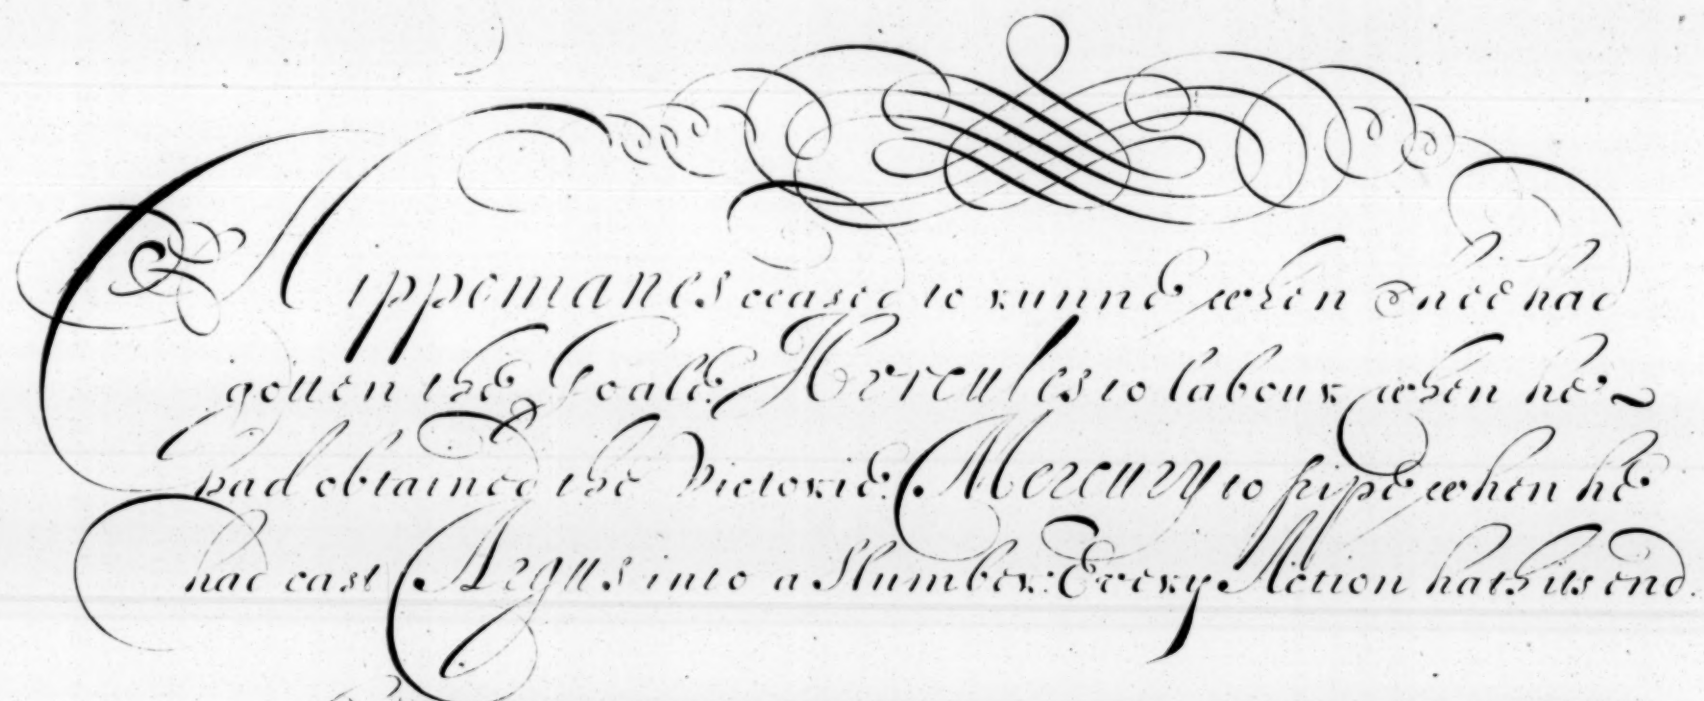 Hippomanes ceased to runne when once hee had
gotten the Goale. Hercules to labour when he
had obtained the Victorie. Mercury to pipe when he
had cast Argus into a Slumber: Every Action hath its end.